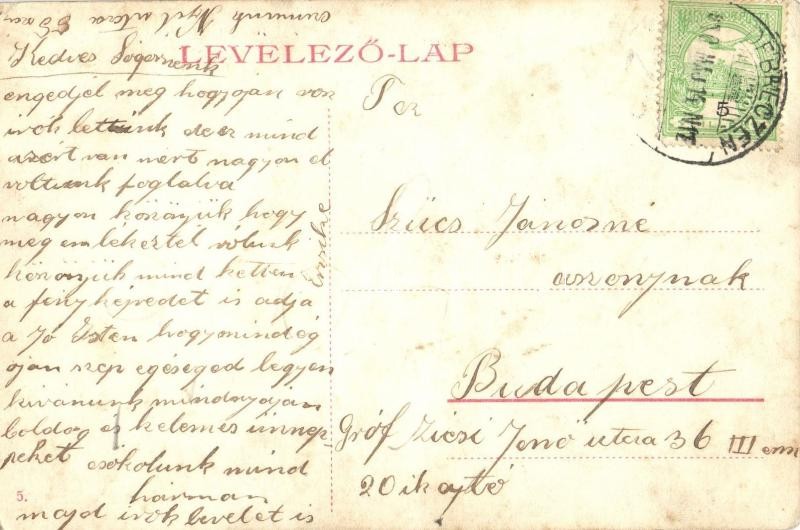 LEVELEZŐ-LAP
Kedves Sógornénk
engedjél meg hogy ojan
irók lettünk de ez mind
azért van mert nagyon el
voltunk foglalva
nagyon köszönjük hogy
meg em lékeztél rólunk
köszönjük mind ketten
a fény képedet is adja
a Jó Isten hogy mindég
ojan szép egéséged legyen
kivánunk mindnyáján
boldog és kelemes ünnep
peket csókolunk mind
hárman
majd irók levelet is
5.
Erzsike
DEBRECZEN
Szücs Jánosné
aszonynak
Budapest
Gróf Zicsi Jenő utcza 36 III em
20 ik ajtó